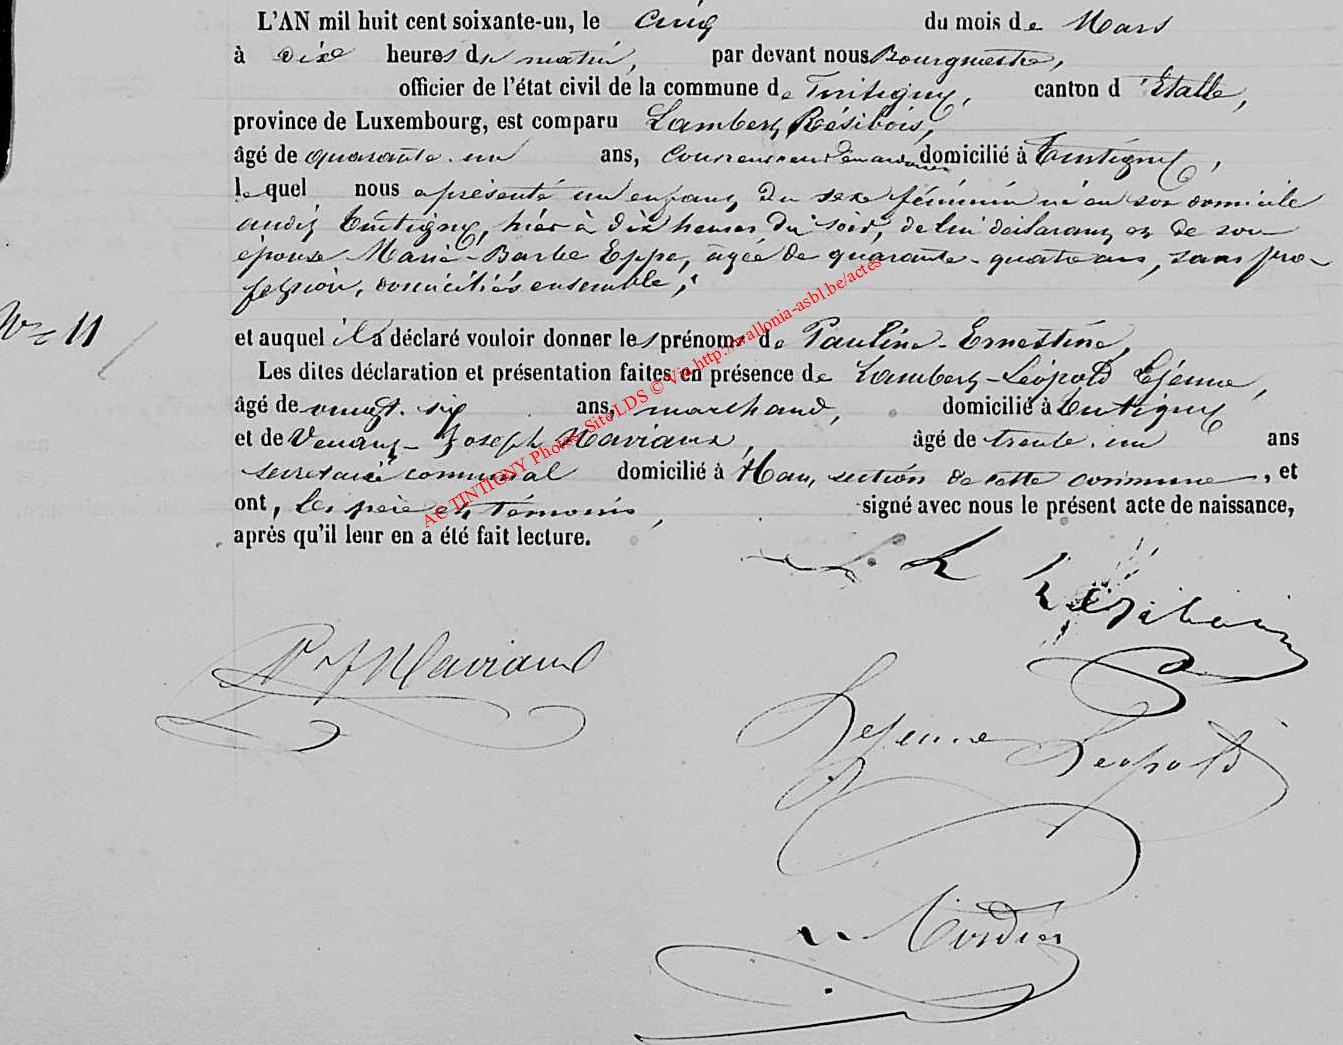 L'AN mil huit cent soixante-un, le cinq du mois de Mars
à dix heures du matin, par devant nous Bourgmestre,
officier de l'état civil de la commune de Tintigny, canton d'Etalle,
province de Luxembourg, est comparu Lambert Résibois,
âgé de quarante-un ans, domicilié à Tintigny,
lequel nous a présenté un enfant du sexe féminin né en son domicile
audit Tintigny, hier à dix heures du soir, de lui déclarant et de son
épouse Marie-Barbe Eppe, âgée de quarante-quatre ans, sans pro-
fession, domiciliés ensemble;
Nº 11
et auquel il a déclaré vouloir donner les prénoms de Pauline-Ernestine,
Les dites déclaration et présentation faites en présence de Lambert-Léopold Lejeune,
âgé de vingt-six ans, marchand, domicilié à Tintigny
et de Venant-Joseph Maviaux, âgé de trente-un ans
secrétaire communal domicilié à Han, section de cette commune, et
ont, les père et témoins, signé avec nous le présent acte de naissance,
après qu'il leur en a été fait lecture.
L Résibois
V J Maviaux
Lejeune Léopold
AC TINTIGNY Photos SiteLDS © Via http://wallonia-asbl.be/actes